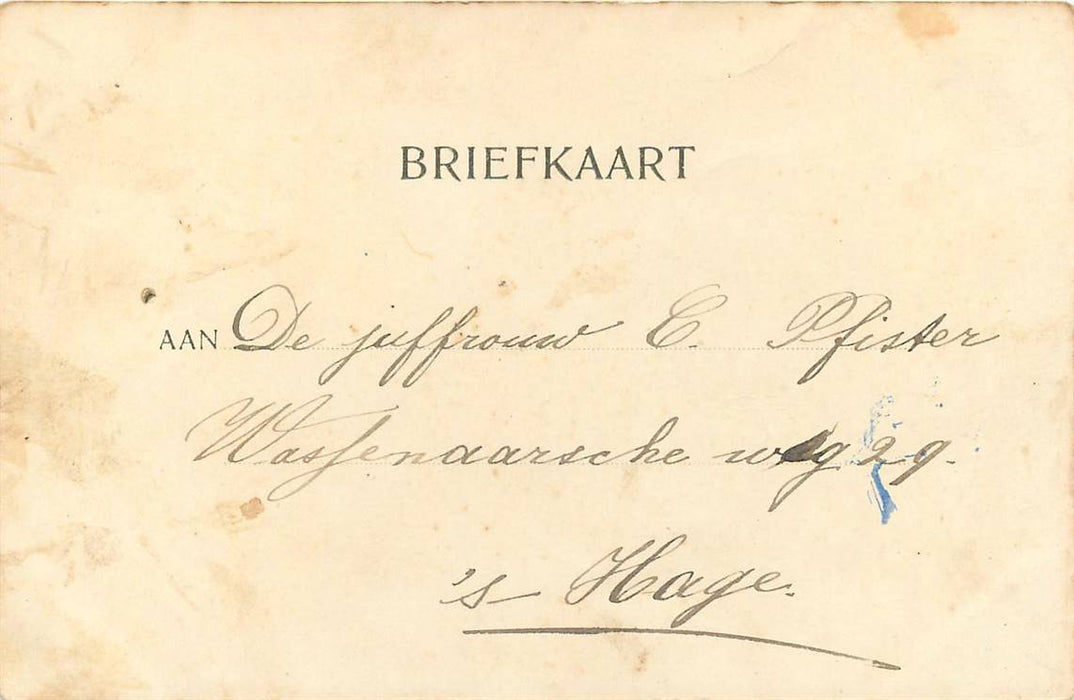 BRIEFKAART
AAN De juffrouw C. Pfister
Wassenaarsche weg 29.
's- Hage.